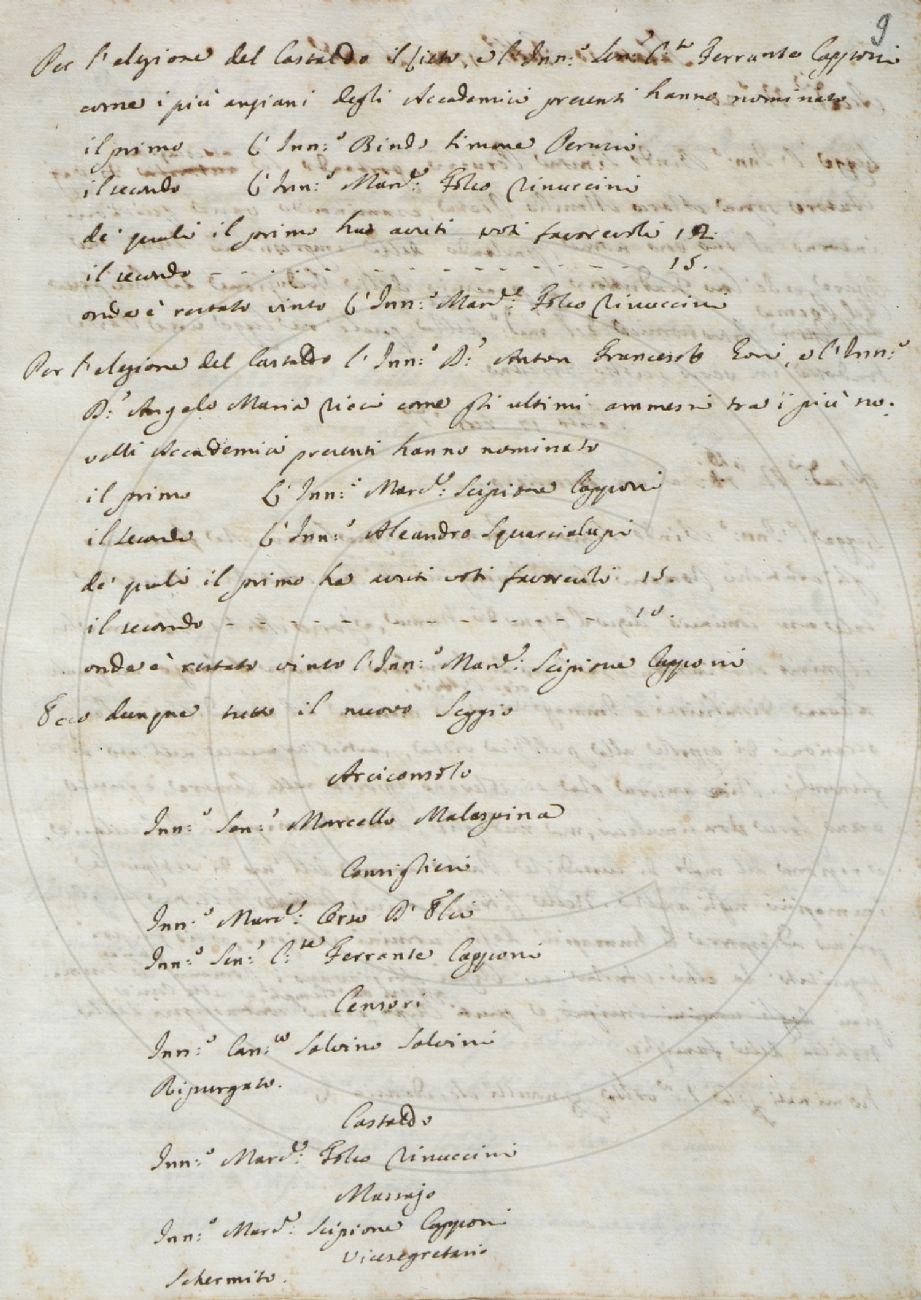 9
Per l'elezione del Castaldo il sieto, e l'Inn:º Sen: C:te Ferrante Capponi
come i più anziani degli Accademici presenti hanno nominato
il primo L'Inn:º Bindo Simone Peruzzi
il secondo L'Inn:º March: Folco Rinuccini
de' quali il primo ha avuti voti favorevoli 12.
il secondo - - - - - - - - - - - - 15.
onde è restato vinto L'Inn:º March:e Folco Rinuccini
Per l'elezione del Castaldo l'Inn:º D:r Anton Francesco Gori, e l'Inn:º
D:r Angelo Maria Ricci come gli ultimi ammessi tra i più no-
velli Accademici presenti hanno nominato
il primo L'Inn:º March: Scipione Capponi
il secondo L'Inn:º Aleandro Squarcialupi
de' quali il primo ha avuti voti favorevoli 15.
il secondo - - - - - - - - - - - - 10.
onde è restato vinto l'Inn:º March: Scipione Capponi
Ecco dunque tutto il nuovo Seggio
Arciconsolo
Inn:º Sen:r Marcello Malaspina
Consiglieri
Inn:º March: Orso D'Elci
Inn:º Sen:r C:te Ferrante Capponi
Censori
Inn:º Can:co Salvino Salvini
Ripurgato.
Castaldo
Inn:º March: Folco Rinuccini
Massajo
Inn:º March: Scipione Capponi
Vicesegretario
Schermito.